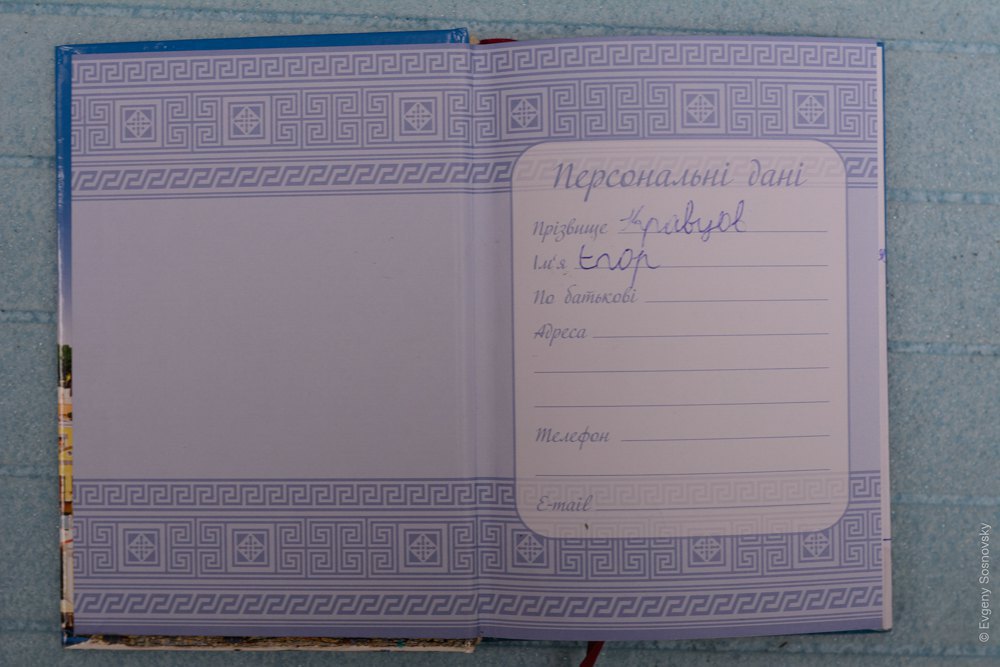 Персональні дані
Прізвище Кравцов
Ім'я Егор
По батькові
Адреса
Телефон
E-mail
© Evgeny Sosnovsky